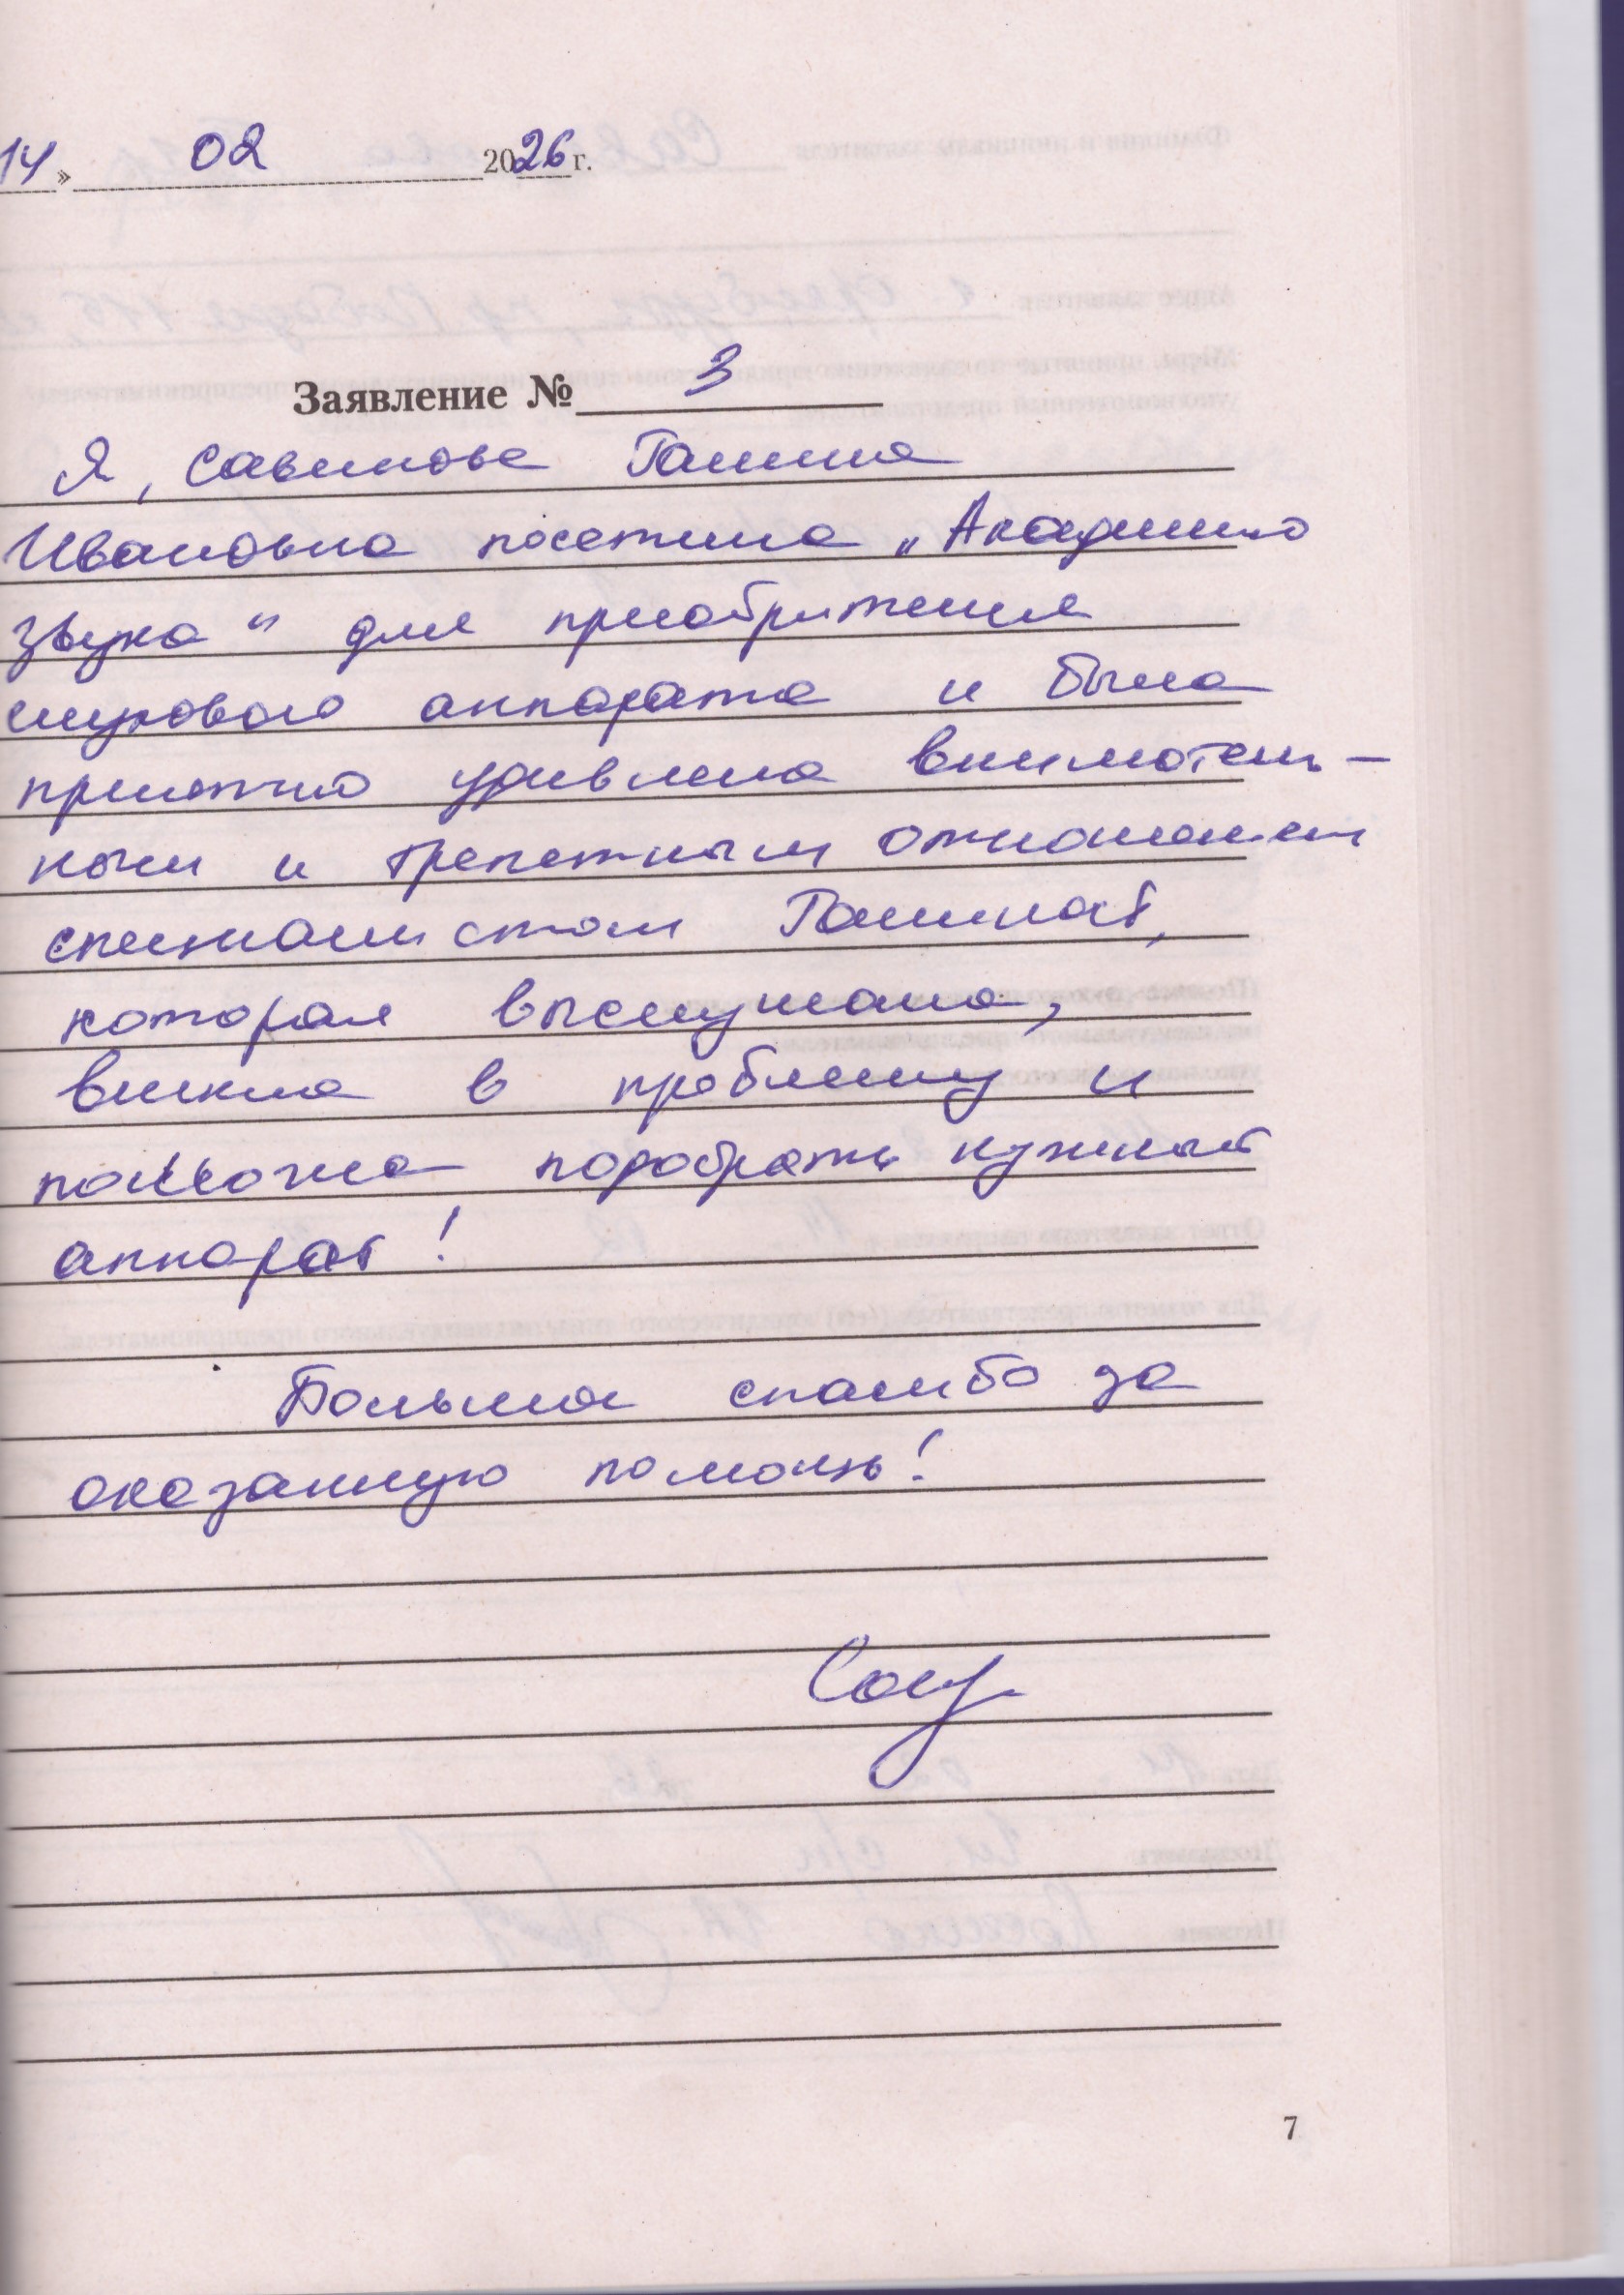 14» 02 2026 г.
Заявление № 3
Я, Савинова Галина
Ивановна посетила „Академию
звука“ для приобритения
слухового аппарата и была
приятно удивлена вниматель-
ным и трепетным отношением
специалистом Галиной,
которая выслушала,
вникла в проблему и
помогла подобрать нужный
аппарат!
Большое спасибо за
оказанную помощь!
7